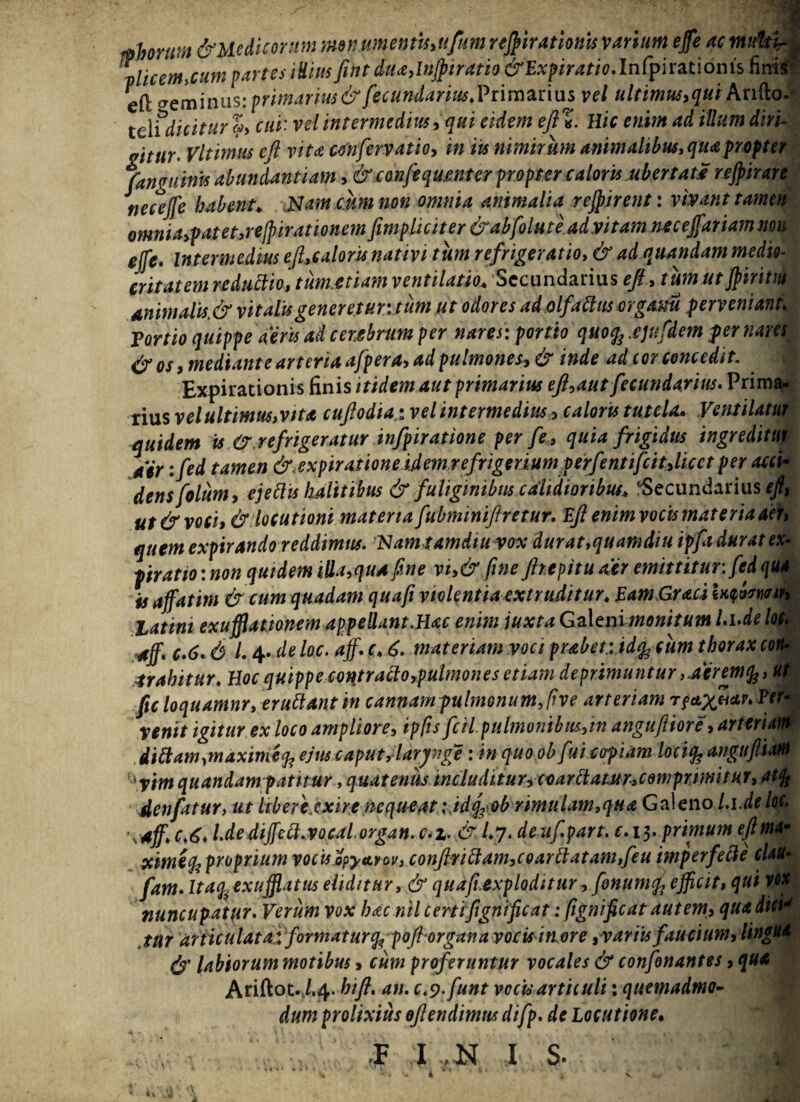 phorum & Medicorum monumentis, usum respirationis varium esse ac multi-
plicem, cum partes illius sint duæ, Inspiratio & Expiratio. Inspirationis finis
est geminus: primarius & secundarius. Primarius vel ultimus, qui Aristo-
teli dicitur cui: vel intermedius, qui eidem est Hic enim ad illum diri-
gitur. Vltimus est vitæ conservatio, in iis nimirum animalibus, quæ propter
sanguinis abundantiam, & consequenter propter caloris ubertatē respirare
necesse habent. Nam cùm non omnia animalia respirent: vivant tamen
omnia, patet, respirationem simpliciter & absolutè ad vitam necessariam non
esse. Intermedius est, caloris nativi tùm refrigeratio, & ad quandam medio-
critatem reductio, tùm etiam ventilatio. Secundarius est, tùm ut spiritus
animalis & vitalis generetur: tùm ut odores ad olfactus organū perveniant.
Portio quippe aëris ad cerebrum per nares: portio quoq; ejusdem per nares
& os, mediante arteria aspera, ad pulmones, & inde ad cor concedit.
Expirationis finis itidem aut primarius est, aut secundarius. Prima-
rius vel ultimus, vitæ custodia: vel intermedius, caloris tutela. Ventilatur
quidem is & refrigeratur inspiratione per se, quia frigidus ingreditur
aër: sed tamen & expiratione idem refrigerium persentiscit, licet per acci-
dens solùm, ejectis halitibus & fuliginibus calidioribus. Secundarius est,
ut & voci, & locutioni materia subministretur. Est enim vocis materia aër,
quem expirando reddimus. Nam tamdiu vox durat, quamdiu ipsa durat ex-
piratio: non quidem illa, quæ sine vi, & sine strepitu aër emittitur: sed quæ
is affatim & cum quadam quasi violentia extruditur. Eam Græci
Latini exufflationem appellant. Hæc enim juxta Galeni monitum l.1. de loc.
aff. c.6. & l. 4. de loc. aff. c. 6. materiam voci præbet: idq; cùm thorax con-
trahitur. Hoc quippe contracto, pulmones etiam deprimuntur, aëremq;, ut
sic loquamur, eructant in cannam pulmonum, sive arteriam τραχεῖαν. Per-
venit igitur ex loco ampliore, ipsis scil. pulmonibus, in angustiorē, arteriam
dictam, maximéq; ejus caput, laryngē: in quo ob sui copiam lociq; angustiam
vim quandam patitur, quatenùs includitur, coarctatur, comprimitur, atq;
densatur, ut liberè exire nequeat: idq; ob rimulam, quæ Galeno l.1. de loc.
aff. c.6. l. de dissect. vocal. organ. c.2. & l.7. de us. part. c. 13. primum est ma-
ximéq; proprium vocis ὄργανον, constrictam, coarctatam, seu imperfectè clau-
sam. Itaq; exufflatus eliditur, & quasi exploditur, sonumq; efficit, qui vox
nuncupatur. Verùm vox hæc nil certi significat: significat autem, quæ dici-
tur articulata: formaturq; post organa vocis in ore, variis faucium, linguæ
& labiorum motibus, cùm proferuntur vocales & consonantes, quæ
Aristot. l.4. hist. an. c.9. sunt vocis articuli: quemadmo-
dum prolixiùs ostendimus disp. de Locutione.
FINIS.